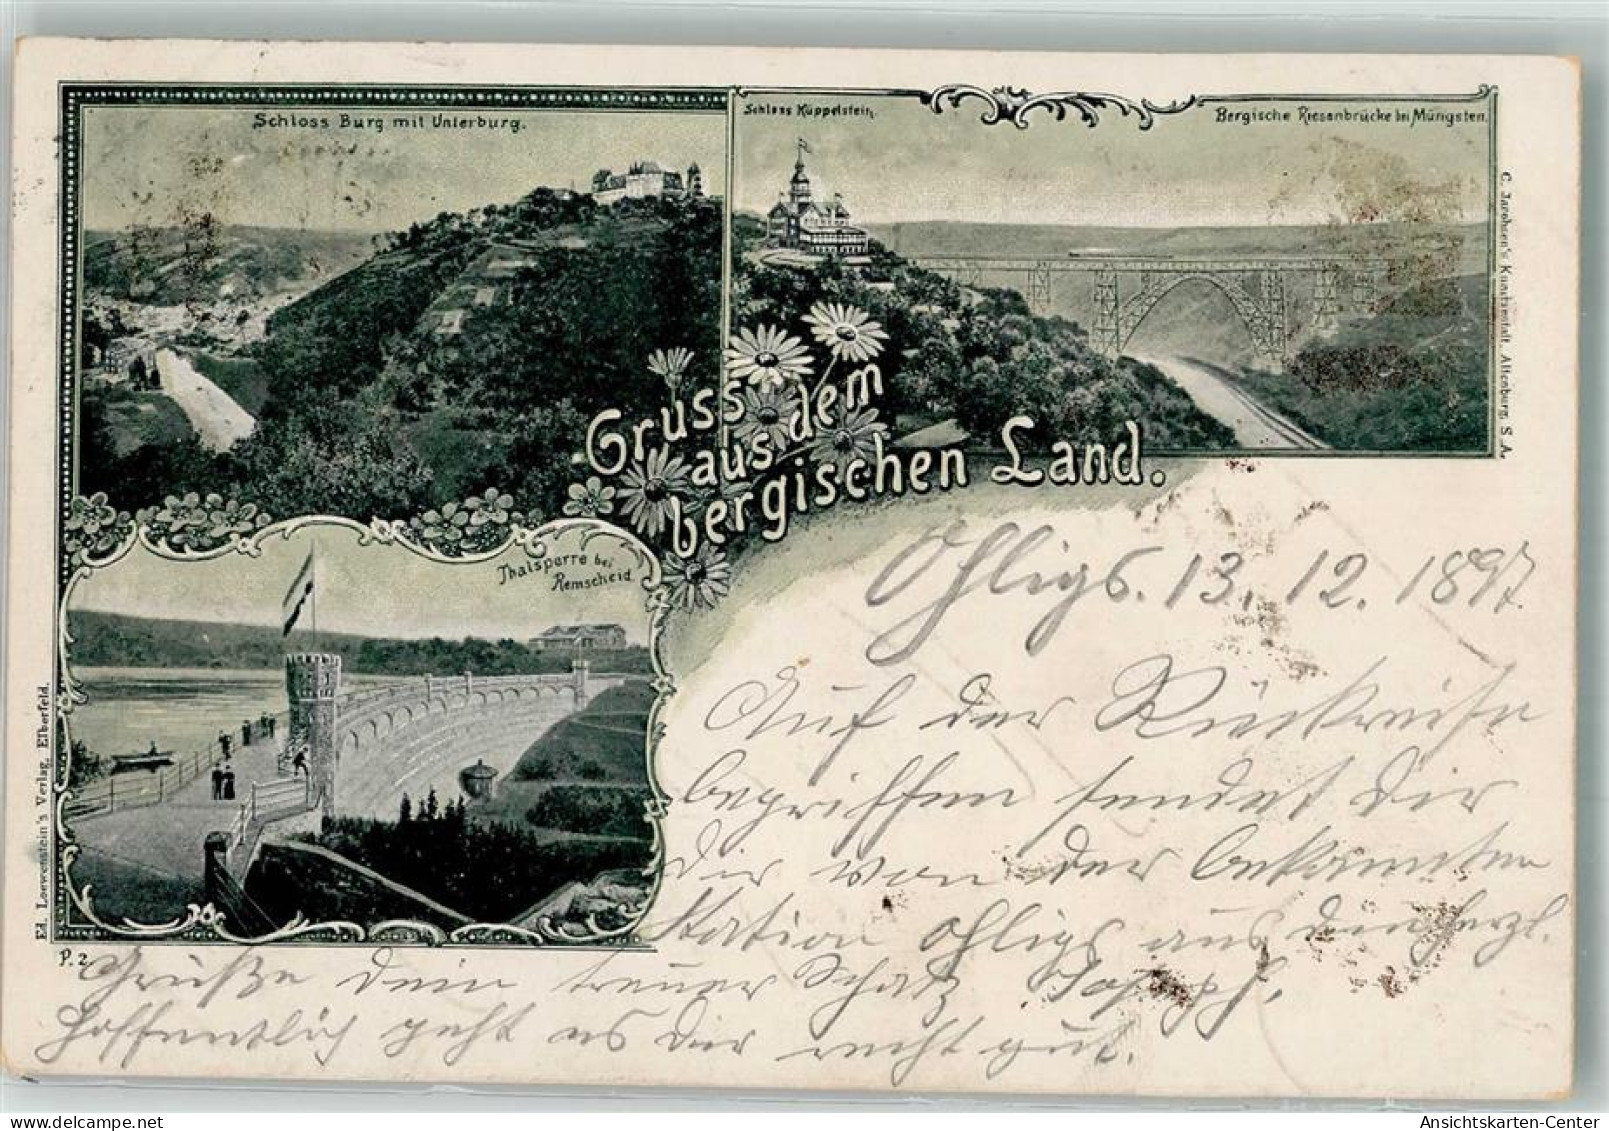 Schloss Burg mit Unterburg.
Schloss Küppelstein.
Bergische Riesenbrücke bei Müngsten.
Gruss
aus dem
bergischen Land.
Thalsperre bei
Remscheid
C. Jacobsen's Kunstanstalt, Altenburg, S. A.
Ed. Loewenstein's Verlag, Elberfeld.
P. 2.
Ohligs. 13. 12. 1897.
Auf der Rückreise
begriffen sendet Dir
Dir von der bekannten
Station Ohligs aus herzl.
Grüße Dein treuer Schatz Joseph.
Hoffentlich geht es Dir recht gut.
Ansichtskarten-Center